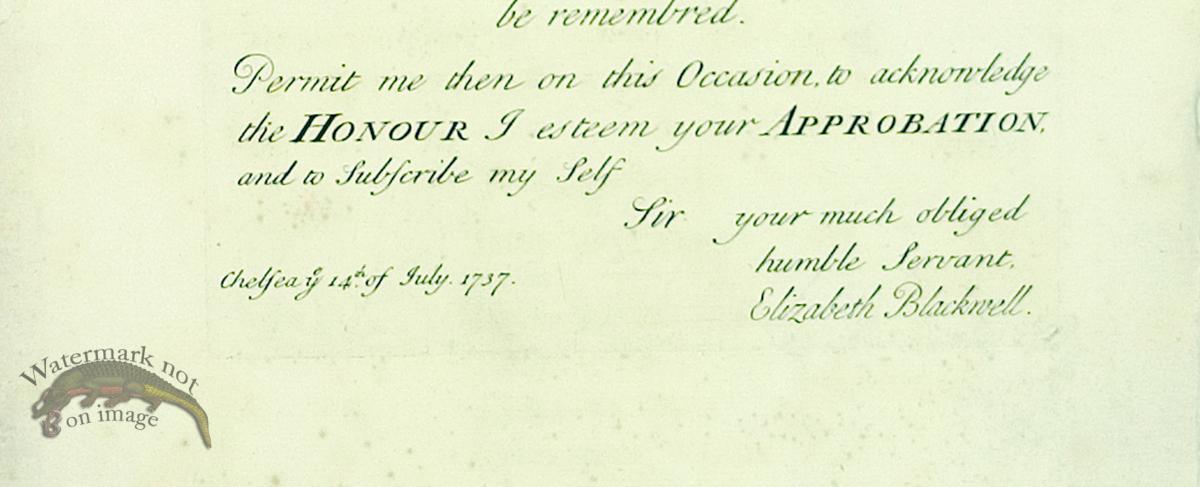 be remembred.
Permit me then on this Occasion, to acknowledge
the HONOUR I esteem your APPROBATION,
and to Subſcribe my Self
Sir your much obliged
humble Servant,
Chelſea yͤ 14th. of July. 1737.
Elizabeth Blackwell.
Watermark not
on image